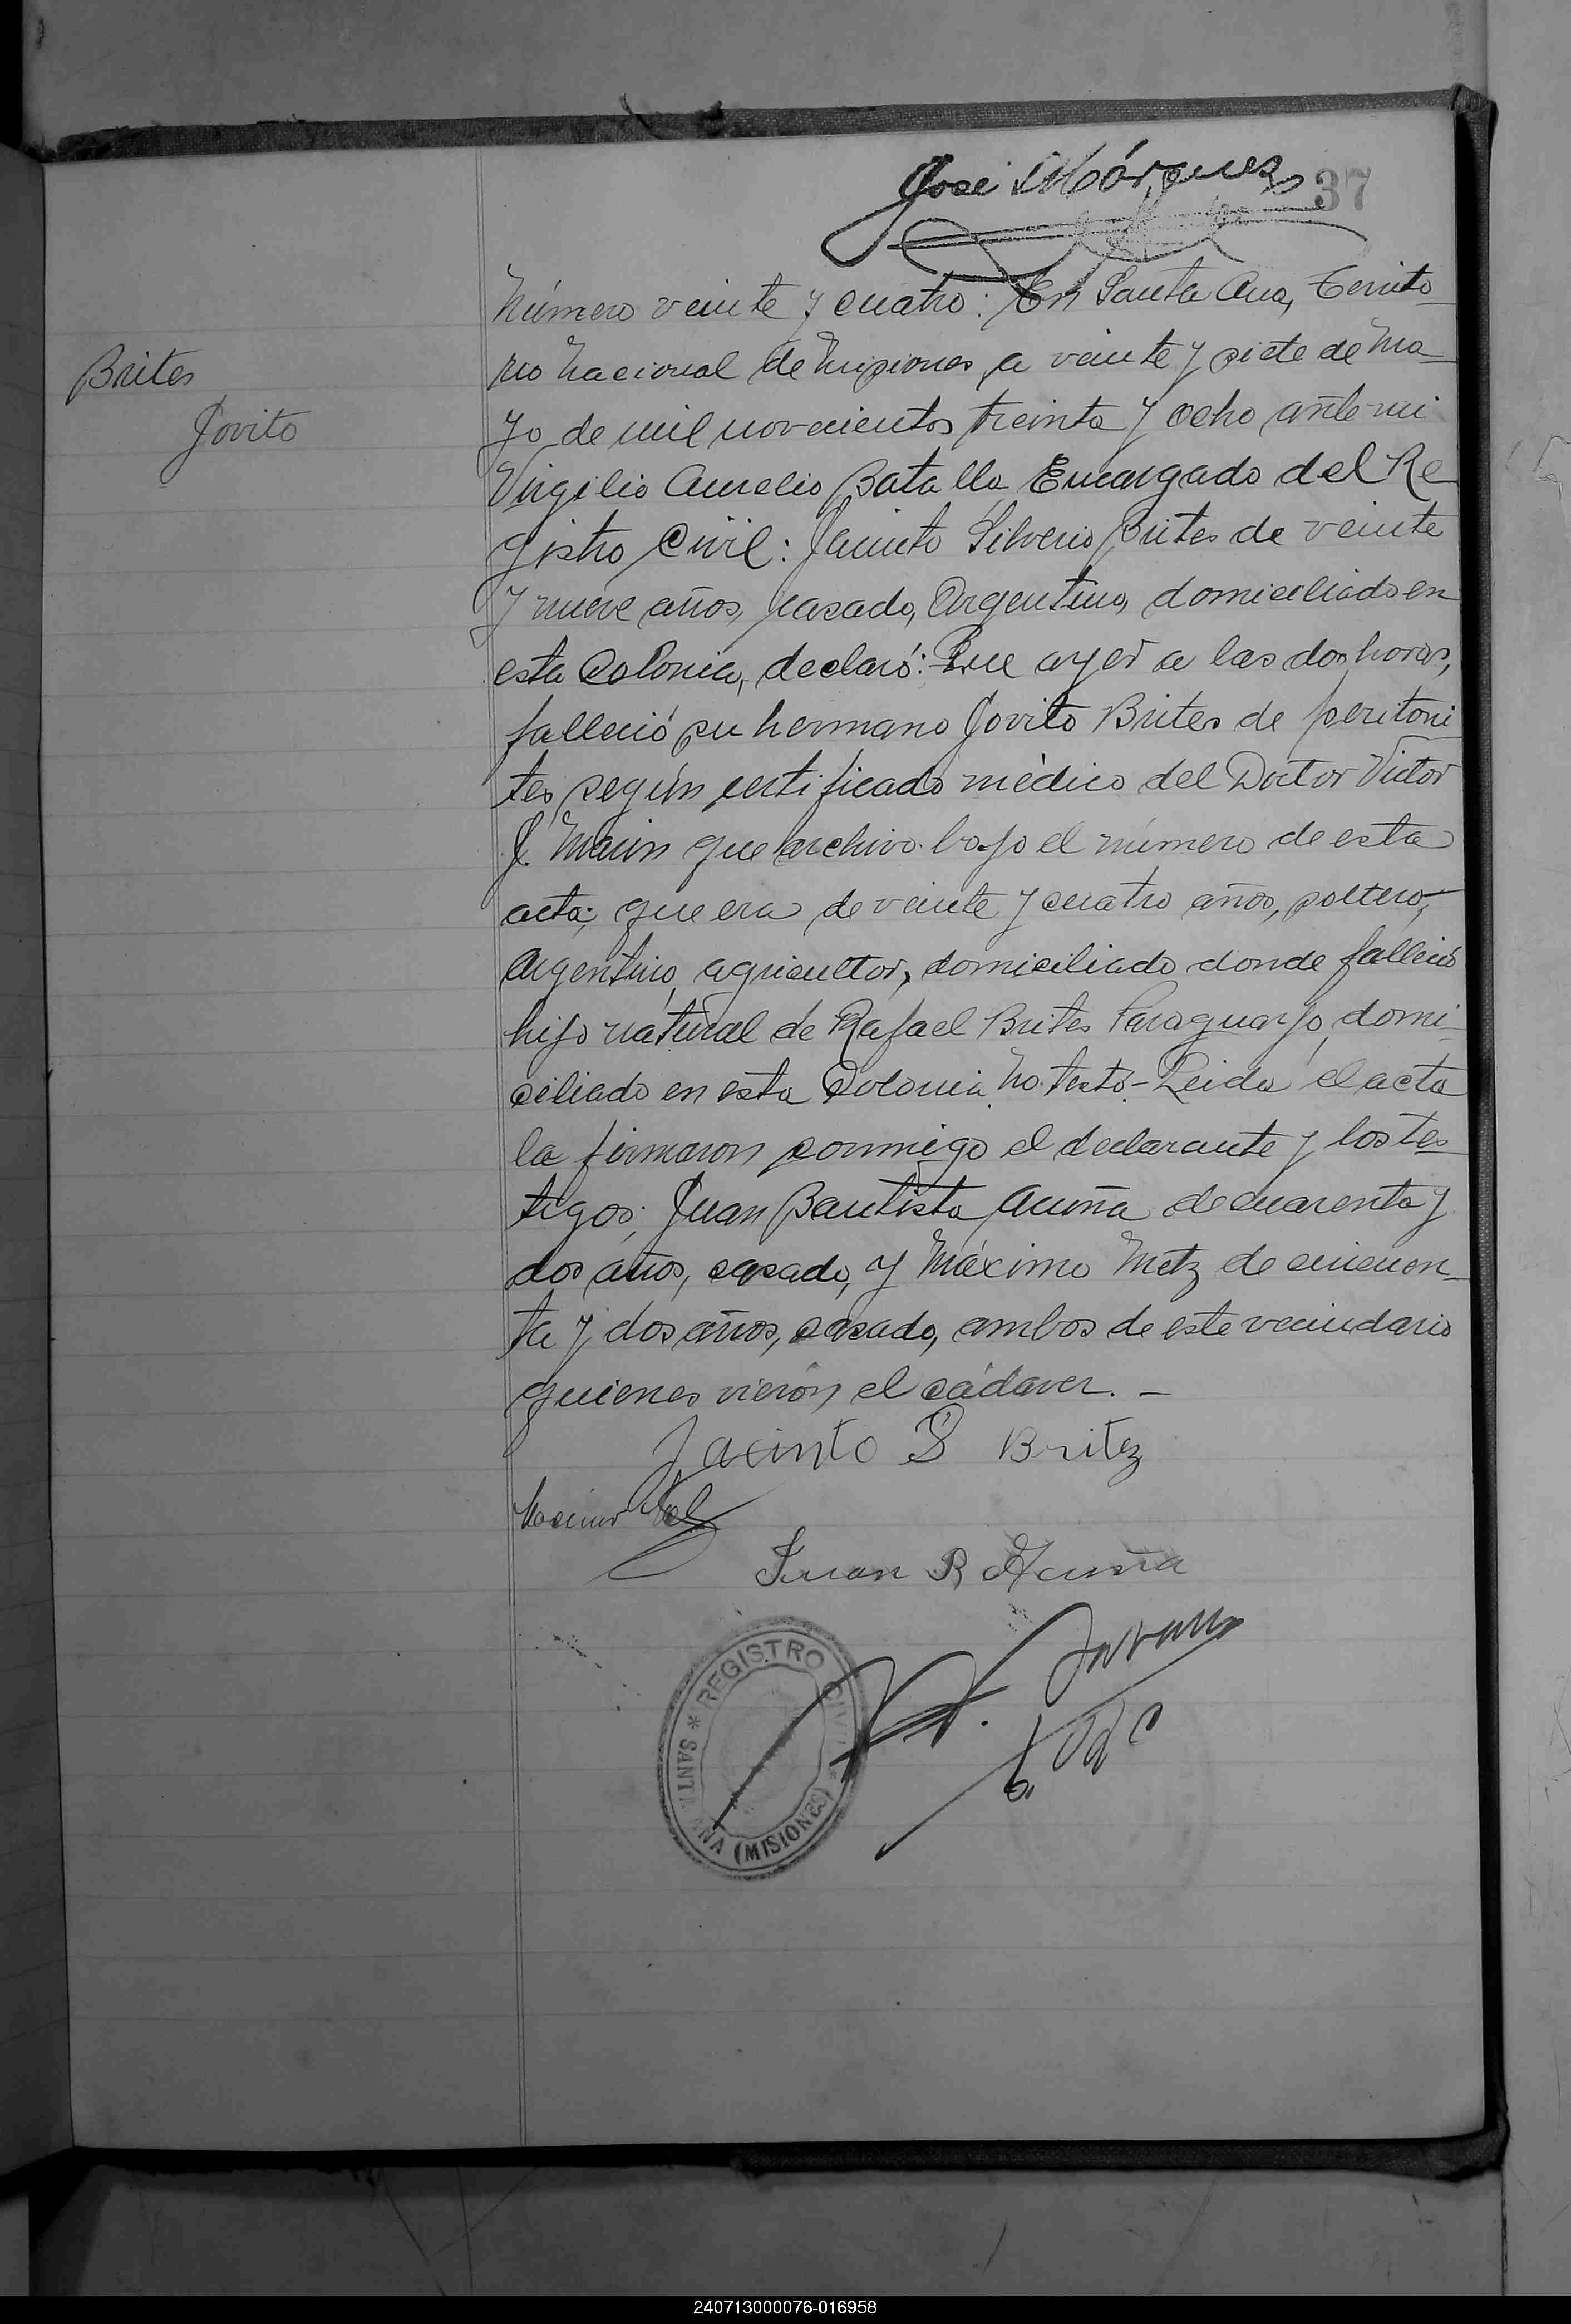 José Márquez 37
Número veinte y cuatro: En Santa Ana, Territo
rio Nacional de Misiones, a veinte y siete de Ma
yo de mil novecientos treinta y ocho ante mi
Virgilio Aurelio Batalla Encargado del Re
gistro Civil: Jacinto Silverio Brites de veinte
y nueve años, casado, Argentino, domiciliado en
esta Colonia, declaró: Que ayer a las dos horas,
falleció su hermano Jovito Brites de peritoni
tes, según certificado médico del Doctor Victor
J. Marin que archivo bajo el número de esta
acta; que era de veinte y cuatro años, soltero,
Argentino, agricultor, domiciliado donde falleció
hijo natural de Rafael Brites Paraguayo, domi
ciliado en esta Colonia, No testó.- Leida el acta
la firmaron conmigo el declarante y los tes
tigos; Juan Bautista Acuña de cuarenta y
dos años, casado, y Máximo Metz de cincuen
ta y dos años, casado, ambos de este vecindario
quienes vierón el cádaver. -
Brites
Jovito
Jacinto S Britez
Juan B Acuña
* REGISTRO CIVIL *
SANTA ANA (MISIONES)
240713000076-016958